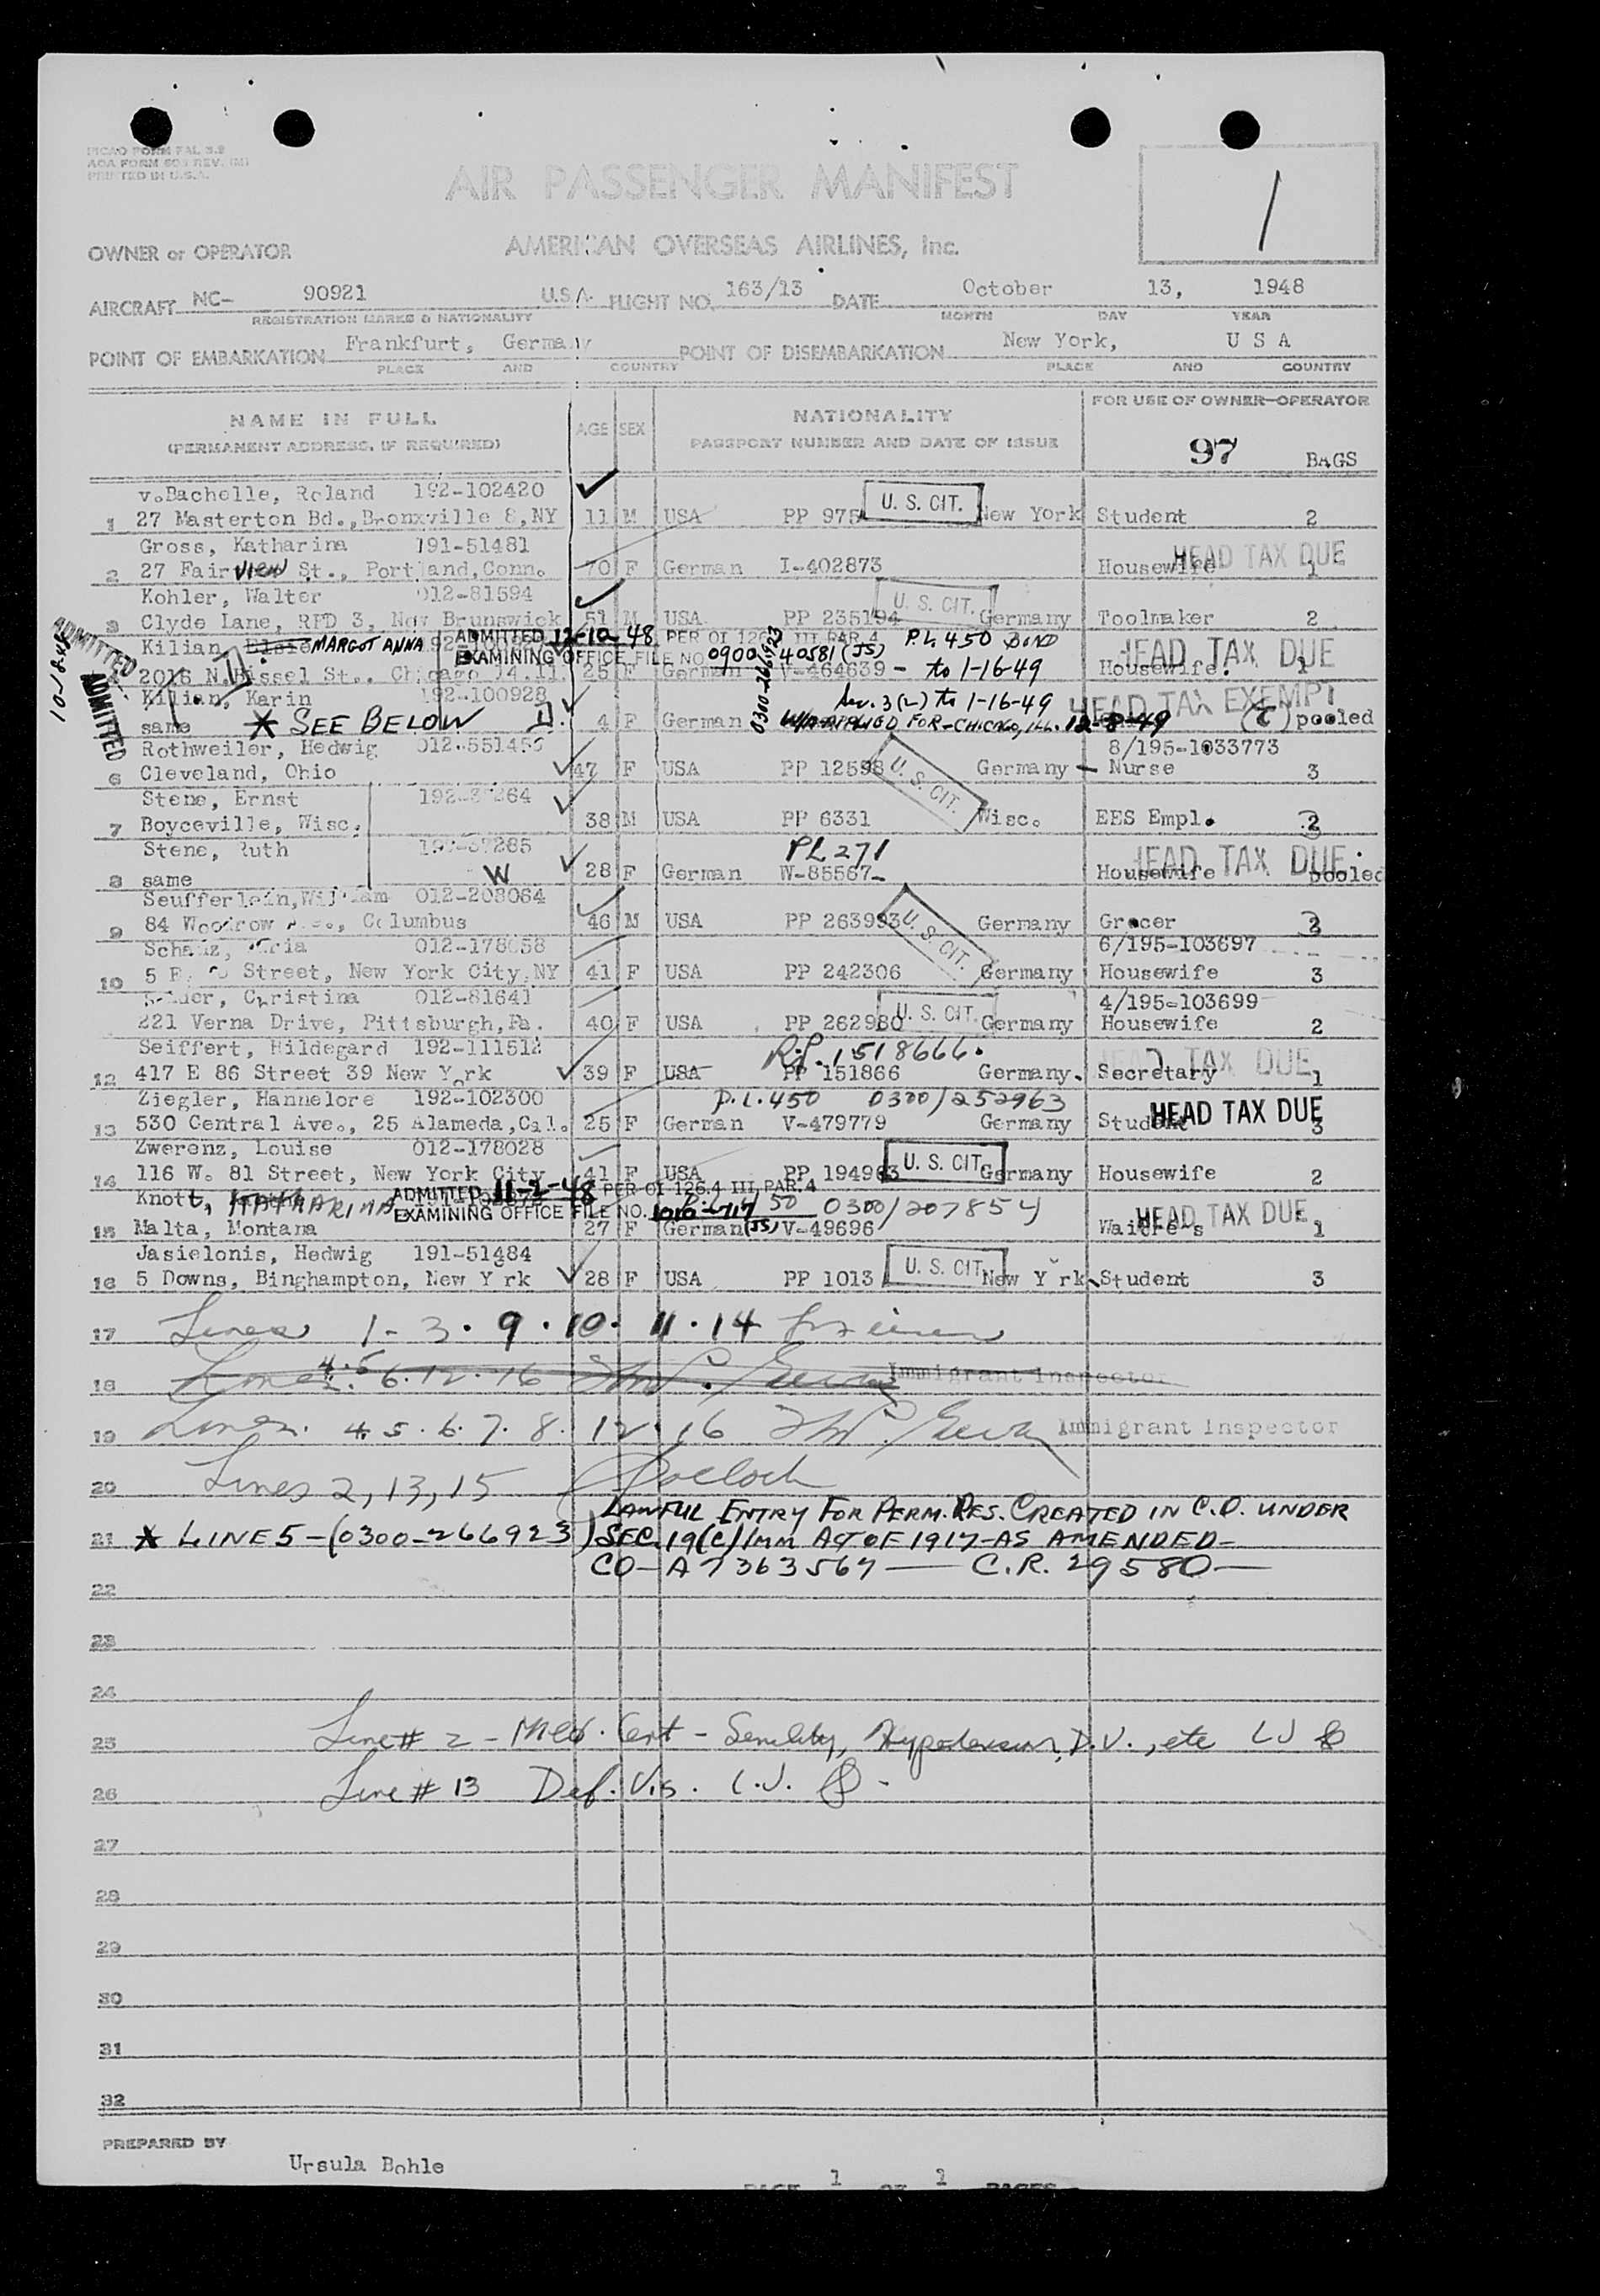 ICAO FORM FAL 3.2
AOA FORM 503 REV. (M)
PRINTED IN U.S.A.
AIR PASSENGER MANIFEST
1
OWNER or OPERATOR AMERICAN OVERSEAS AIRLINES, Inc.
AIRCRAFT NC- 90921 U.S.A. FLIGHT NO. 163/13 DATE October 13, 1948
REGISTRATION MARKS & NATIONALITY MONTH DAY YEAR
POINT OF EMBARKATION Frankfurt, Germany POINT OF DISEMBARKATION New York, U S A
PLACE AND COUNTRY PLACE AND COUNTRY
NAME IN FULL AGE SEX NATIONALITY FOR USE OF OWNER-OPERATOR
(PERMANENT ADDRESS, IF REQUIRED) PASSPORT NUMBER AND DATE OF ISSUE 97 BAGS
v.Bachelle, Roland 192-102420
1 27 Masterton Bd., Bronxville 8, NY 11 M USA PP 975 U. S. CIT. New York Student 2
Gross, Katharina 191-51481 HEAD TAX DUE
2 27 Fairview St., Portland, Conn. 70 F German I-402873 Housewife 1
Kohler, Walter 012-81594 U. S. CIT.
3 Clyde Lane, RFD 3, Nov Brunswick 51 M USA PP 235194 Germany Toolmaker 2
Kilian, Elsie MARGOT ANNA ADMITTED 12-10-48 PER OI 126.4 III PAR. 4 P.L. 450 BOND
EXAMINING OFFICE FILE NO. 0900-40581 (JS) HEAD TAX DUE
2016 N. Bissel St., Chicago 14, Ill. 25 F German V-464639 - to 1-16-49 Housewife. 1
ADMITTED
10-18-48
ADMITTED
0300-266923
Kilian, Karin 192-100928 Sec. 3(2) to 1-16-49 HEAD TAX EXEMPT
same * SEE BELOW 4 F German APPLIED FOR - CHICAGO, ILL. 12-8-49 pooled
Rothweiler, Hedwig 8/195-1033773
6 Cleveland, Ohio 47 F USA PP 12598 U. S. CIT. Germany - Nurse 3
Stene, Ernst
7 Boyceville, Wisc. 38 M USA PP 6331 Wisc. EES Empl. 2
Stene, Ruth PL 271 HEAD TAX DUE
8 same W 28 F German W-85567- Housewife pooled
Seufferlein, William 012-208064
9 84 Woodrow Columbus 46 M USA PP 263993 U. S. CIT. Germany Grocer 2
Maria 012-178058 6/195-103697
10 5 Street, New York City, NY 41 F USA PP 242306 Germany Housewife 3
Christina 012-81641 4/195-103699
221 Verna Drive, Pittsburgh, Pa. 40 F USA PP 262980 U. S. CIT. Germany Housewife 2
Seiffert, Hildegard 192-111512 1518666. HEAD TAX DUE
12 417 E 86 Street 39 New York 39 F USA PP 151866 Germany. Secretary 1
Ziegler, Hannelore 192-102300 P.L. 450 0300/252963
13 530 Central Ave., 25 Alameda, Cal. 25 F German V-479779 Germany Student HEAD TAX DUE 3
Zwerenz, Louise 012-178028
14 116 W. 81 Street, New York City 41 F USA PP 194963 U. S. CIT. Germany Housewife 2
Knott, KATHARINA ADMITTED 11-2-48 PER OI-126.4 III, PAR. 4
EXAMINING OFFICE FILE NO. 1016-717 50 0300/207854 HEAD TAX DUE
15 Malta, Montana 27 F German (JS) V-49696 Waitress 1
Jasielonis, Hedwig 191-51484
16 5 Downs, Binghampton, New York 28 F USA PP 1013 U. S. CIT. New York Student 3
17 Lines 1 - 3 . 9 . 10 . 11 . 14
18 Lines 4.5 6.12.16 Immigrant Inspector
19 Lines. 4. 5. 6. 7. 8. 12. 16 Immigrant Inspector
20 Lines 2, 13, 15 Pollock
LAWFUL ENTRY FOR PERM. RES. CREATED IN C.O. UNDER
21 * LINE 5-(0300-266923) SEC. 19(C) IMM ACT OF 1917-AS AMENDED-
CO-A7363567 — C.R. 29580 —
22
23
24
25 Line # 2 - Med. Cert - Senility, Hypertension, D.V., etc
26 Line # 13 Def. Vis.
27
28
29
30
31
32
PREPARED BY
Ursula Bohle
PAGE 1 OF 1 PAGES